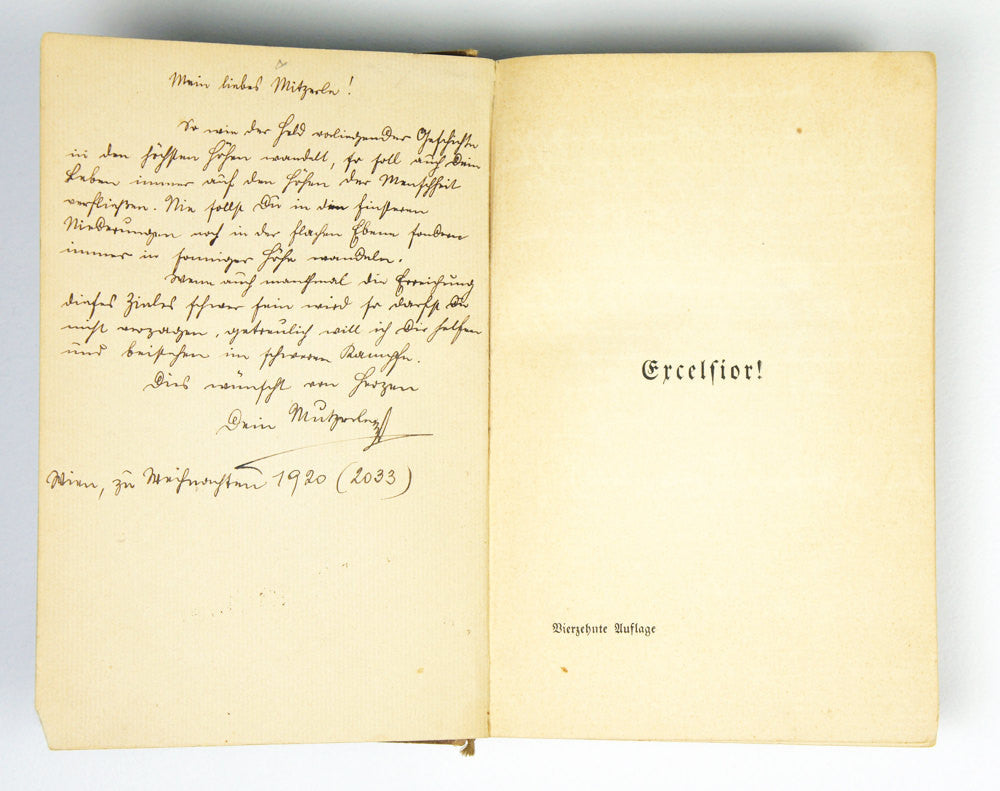 Mein liebes Mitzerle!
So wie der Held vorliegender Geschichte
in den höchsten Höhen wandelt, so soll auch Dein
Leben immer auf den Höhen der Menschheit
verfließen. Nie sollst Du in den finsteren
Niederungen noch in der flachen Ebene sondern
immer in sonniger Höhe wandeln.
Wenn auch manchmal die Erreichung
dieses Zieles schwer sein wird so darfst Du
nicht verzagen, getreulich will ich Dir helfen
und beistehen im schweren Kampfe.
Dies wünscht von Herzen
Dein Mutzerle
Wien, zu Weihnachten 1920 (2033)
Excelſior!
Vierzehnte Auflage